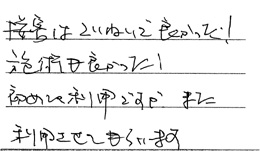 接客はていねいで良かった!
施術も良かった!
初めて利用ですが また
利用させてもらいます